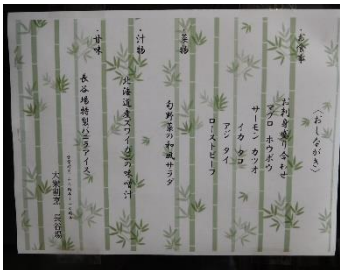 〈おしながき〉
・お食事
お刺身盛り合わせ
マグロ ホウボウ
サーモン カツオ
イカ タコ
アジ タイ
ローストビーフ
・菜物
旬野菜の和風サラダ
・汁物
北海道産ズワイガニの味噌汁
・甘味
長谷場特製バニラアイス